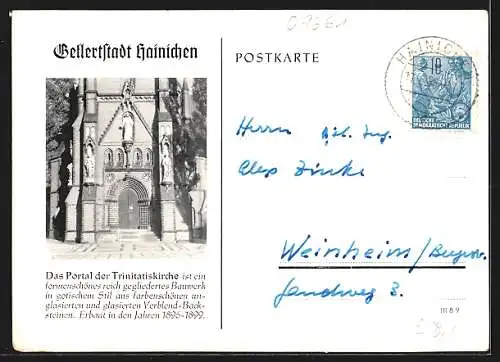 09661
Gellertstadt Hainichen
POSTKARTE
HAINICHEN
10
DEUTSCHE
DEMOKRATISCHE REPUBLIK
Herrn Dipl. Ing.
Weinheim/Bergstr.
Landweg 3.
Das Portal der Trinitatiskirche ist ein
formenschönes reich gegliedertes Bauwerk
in gotischem Stil aus farbenschönen un-
glasierten und glasierten Verblend-Back-
steinen. Erbaut in den Jahren 1896-1899.
III 8 9